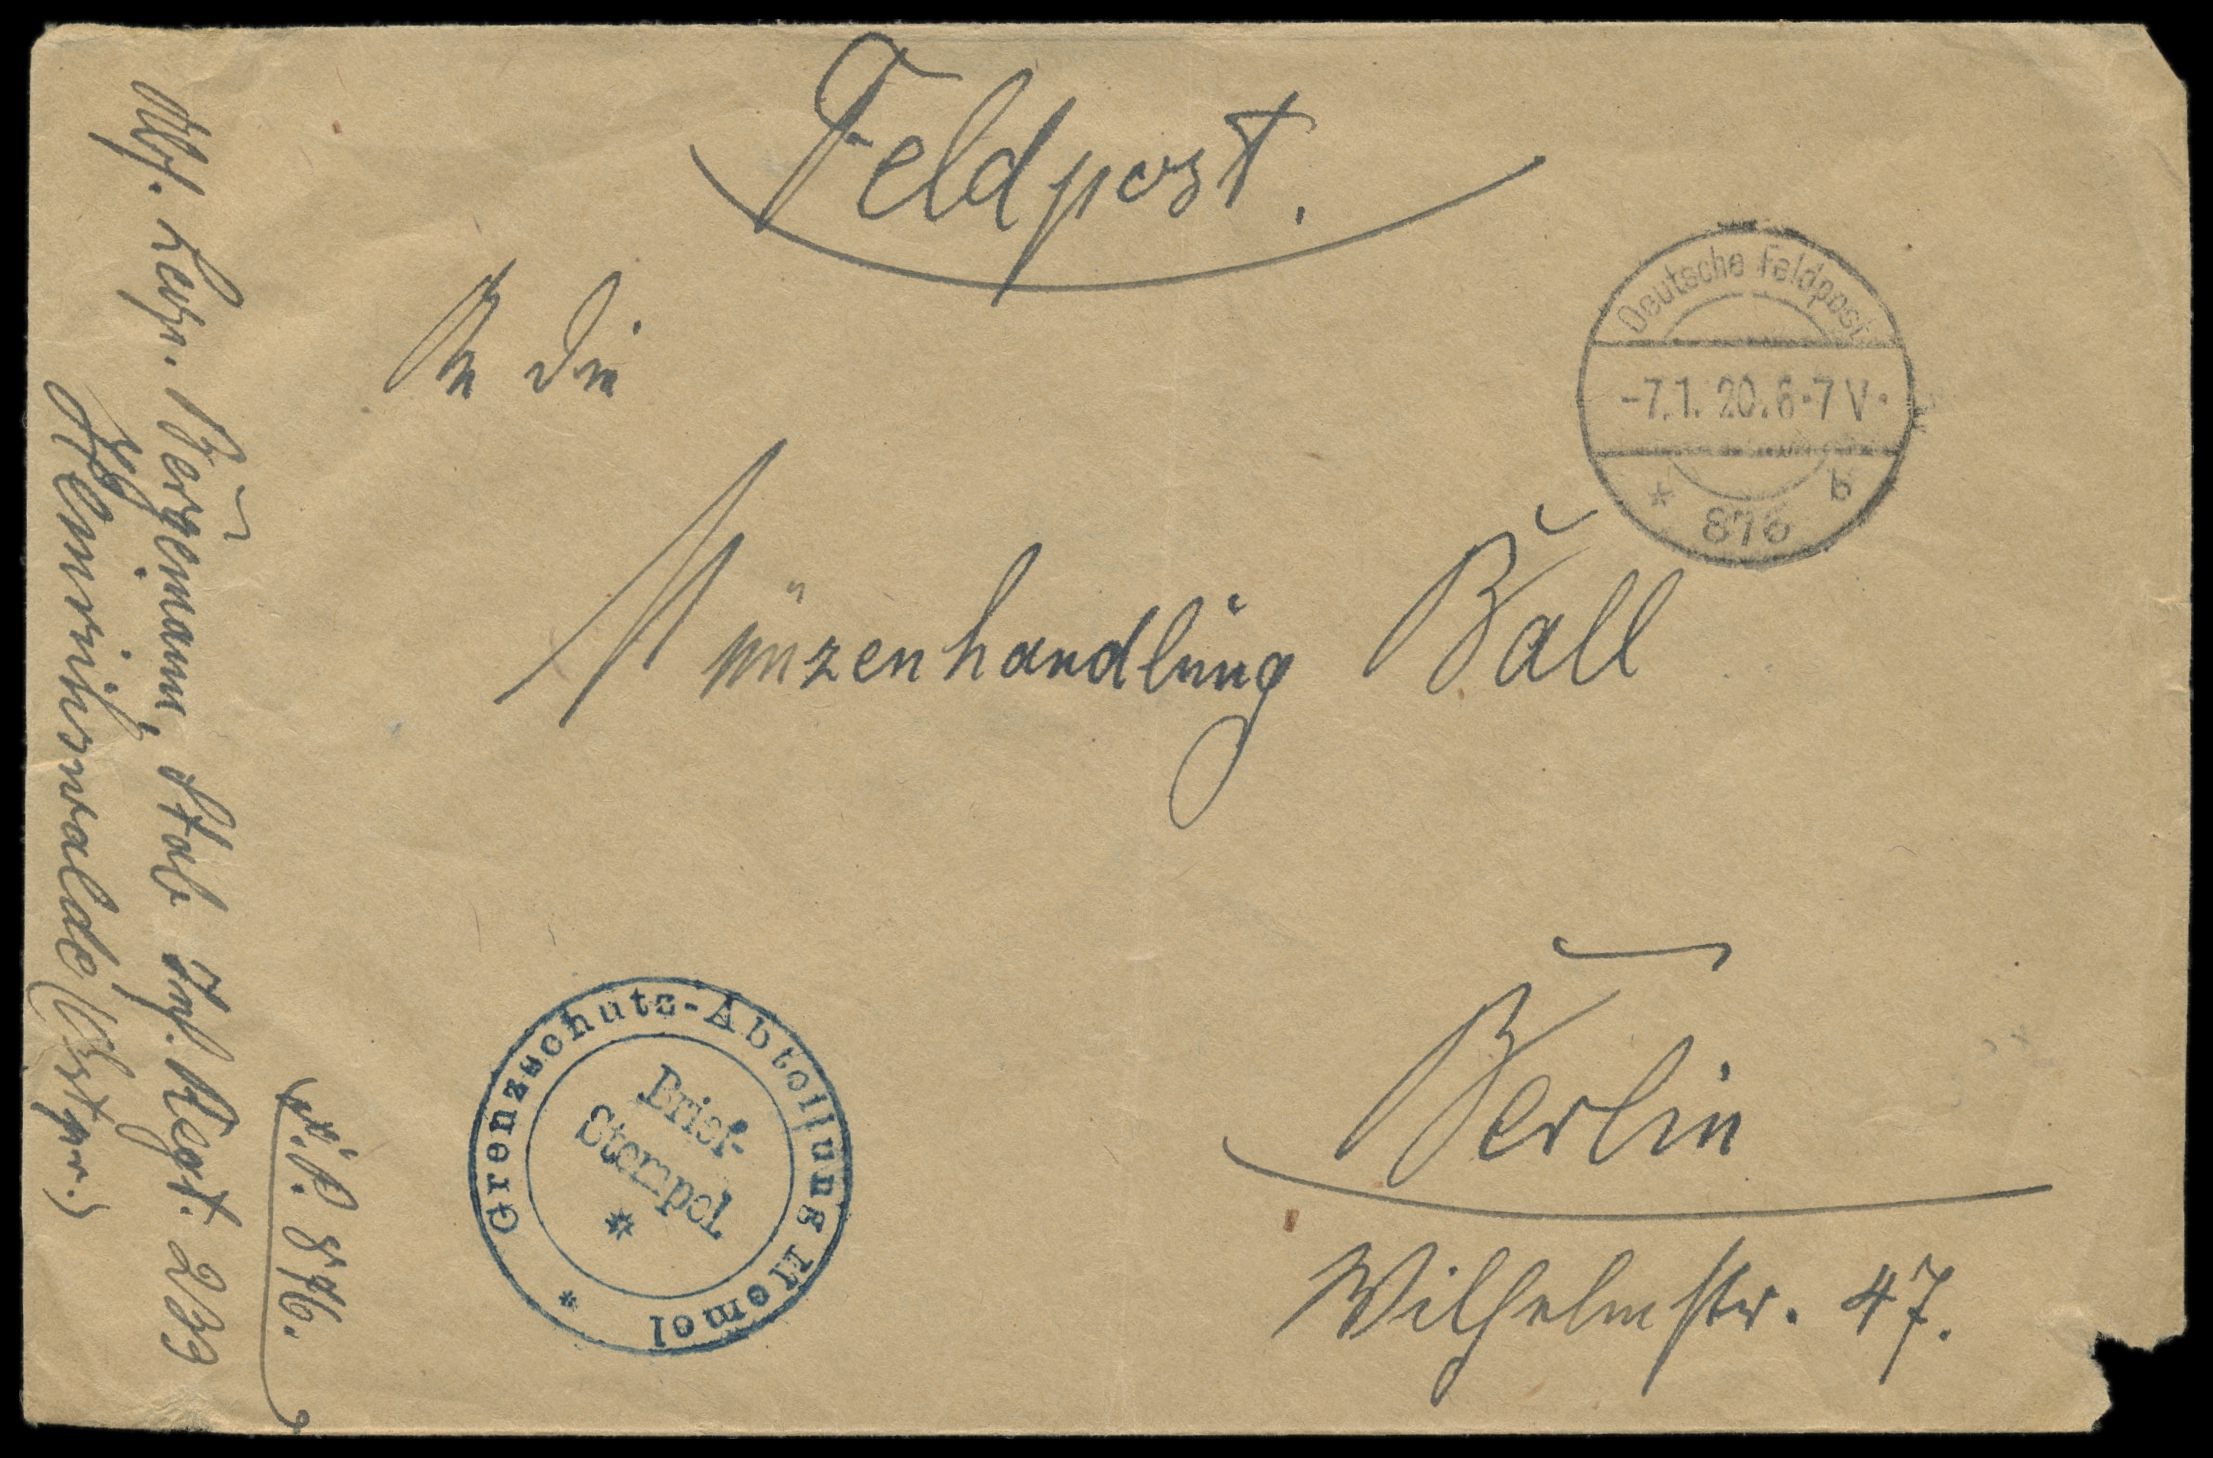 Feldpost.
An die
Münzenhandlung Ball
Berlin
Wilhelmstr. 47.
Deutsche Feldpost
-7.1.20.6-7V.
* 876
Grenzschutz-Abteilung Memel
*
Brief-
Stempel
*
Abs. Bergemann, Stab Inf. Regt. 233
Heinrichswalde (Ostpr.)
F.P. 876.